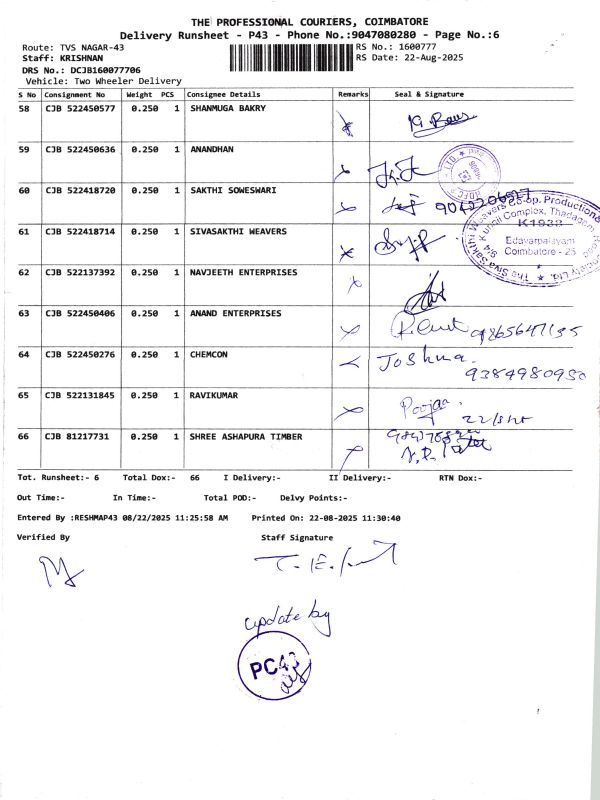 THE PROFESSIONAL COURIERS, COIMBATORE
Delivery Runsheet - P43 - Phone No.:9047080280 - Page No.:6
Route: TVS NAGAR-43 RS No.: 1600777
Staff: KRISHNAN RS Date: 22-Aug-2025
DRS No.: DCJB160077706
Vehicle: Two Wheeler Delivery
S No Consignment No Weight PCS Consignee Details Remarks Seal & Signature
58 CJB 522450577 0.250 1 SHANMUGA BAKRY
59 CJB 522450636 0.250 1 ANANDHAN
60 CJB 522418720 0.250 1 SAKTHI SOWESWARI
61 CJB 522418714 0.250 1 SIVASAKTHI WEAVERS
K1938
Edayarpalayam
Coimbatore - 25
62 CJB 522137392 0.250 1 NAVJEETH ENTERPRISES
63 CJB 522450406 0.250 1 ANAND ENTERPRISES
64 CJB 522450276 0.250 1 CHEMCON Joshua
9384980950
65 CJB 522131845 0.250 1 RAVIKUMAR Poojaa
66 CJB 81217731 0.250 1 SHREE ASHAPURA TIMBER
Tot. Runsheet:- 6 Total Dox:- 66 I Delivery:- II Delivery:- RTN Dox:-
Out Time:- In Time:- Total POD:- Delvy Points:-
Entered By :RESHMAP43 08/22/2025 11:25:58 AM Printed On: 22-08-2025 11:30:40
Verified By Staff Signature
update by
PC43